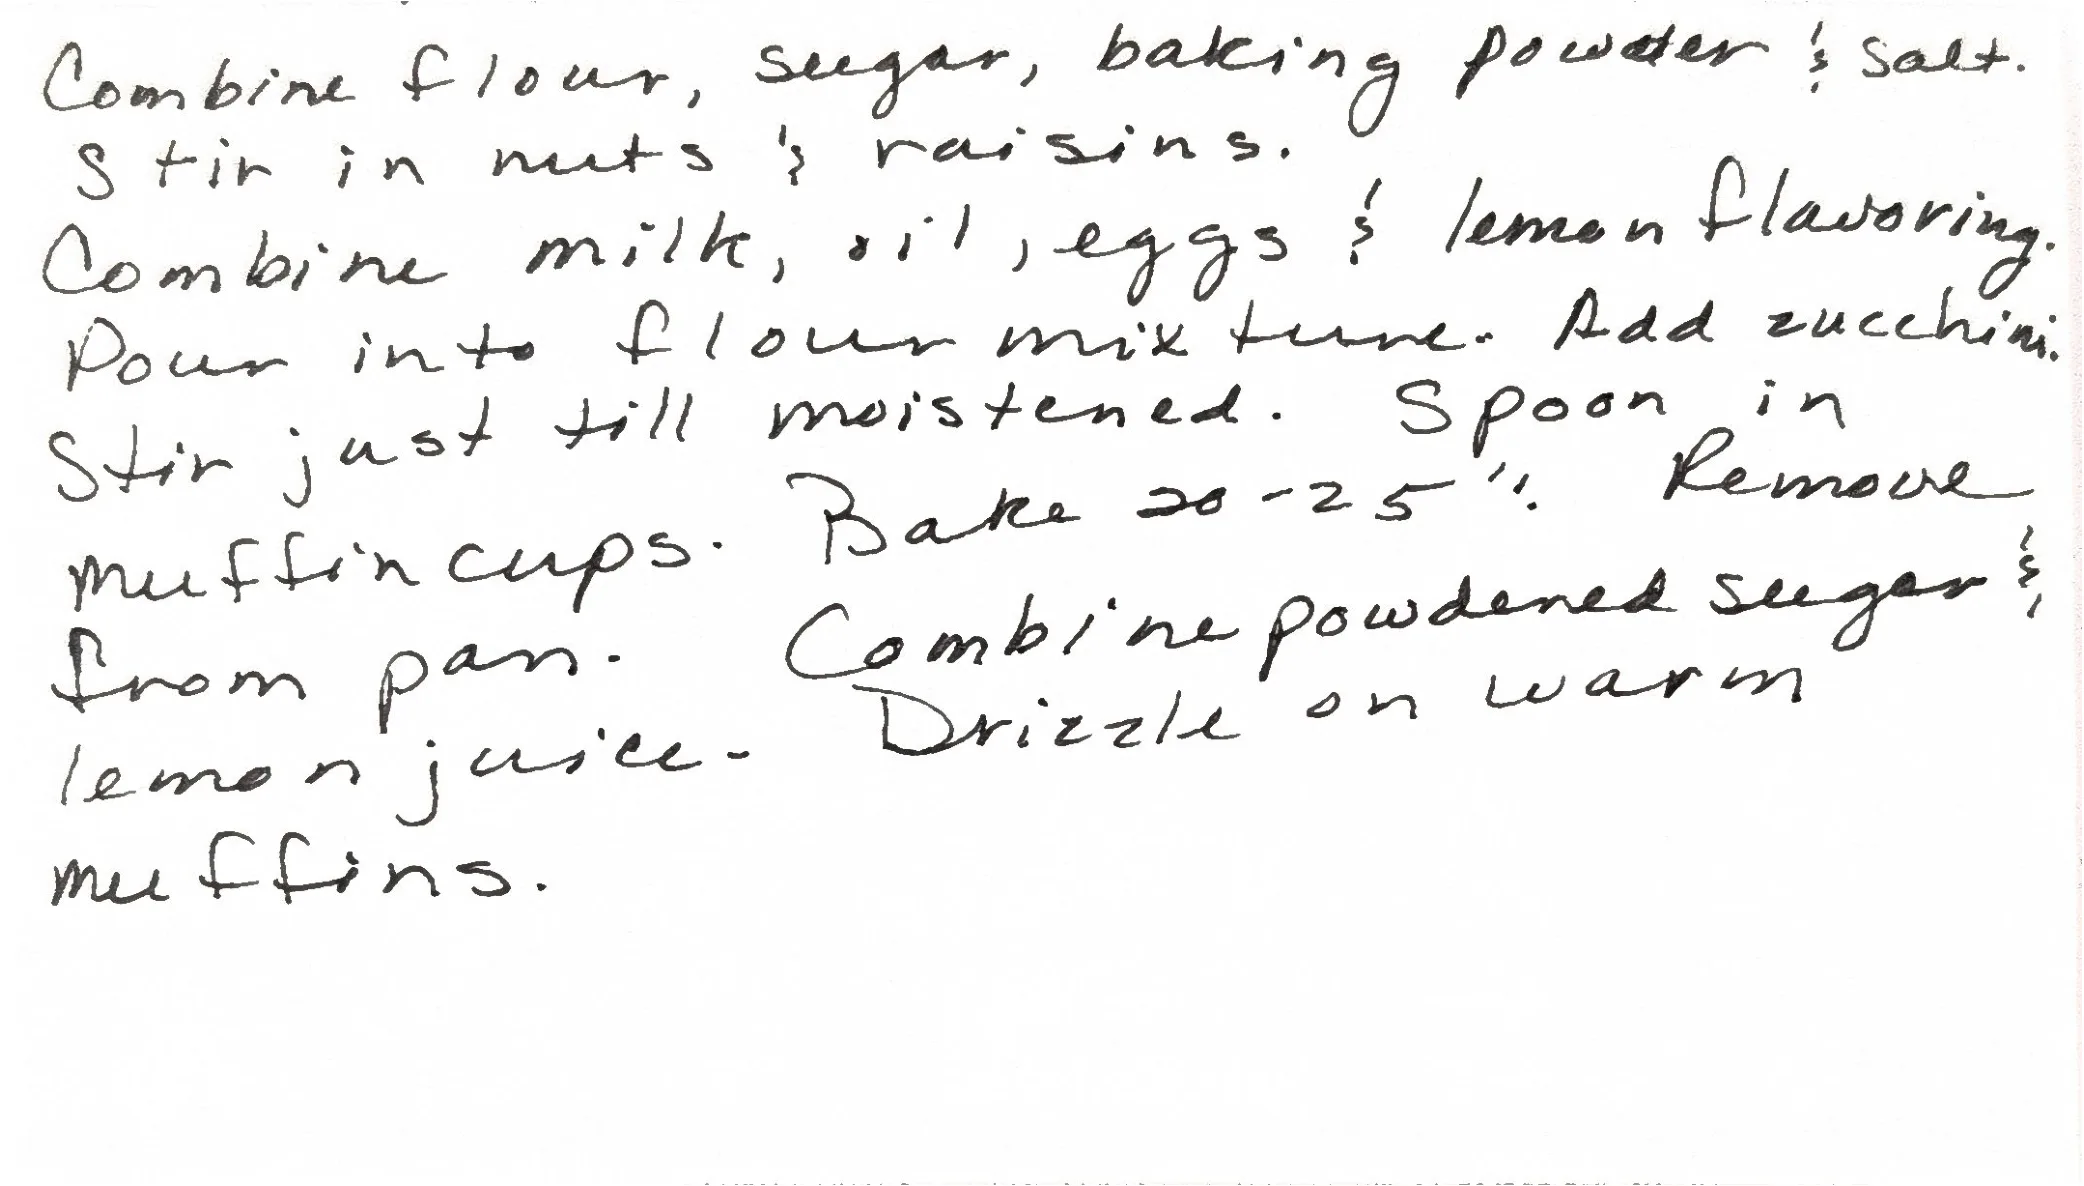 Combine flour, sugar, baking powder & salt.
Stir in nuts & raisins.
Combine milk, oil, eggs & lemon flavoring.
Pour into flour mixture. Add zucchini.
Stir just till moistened. Spoon in
muffin cups. Bake 20-25". Remove
from pan. Combine powdered sugar &
lemon juice. Drizzle on warm
muffins.